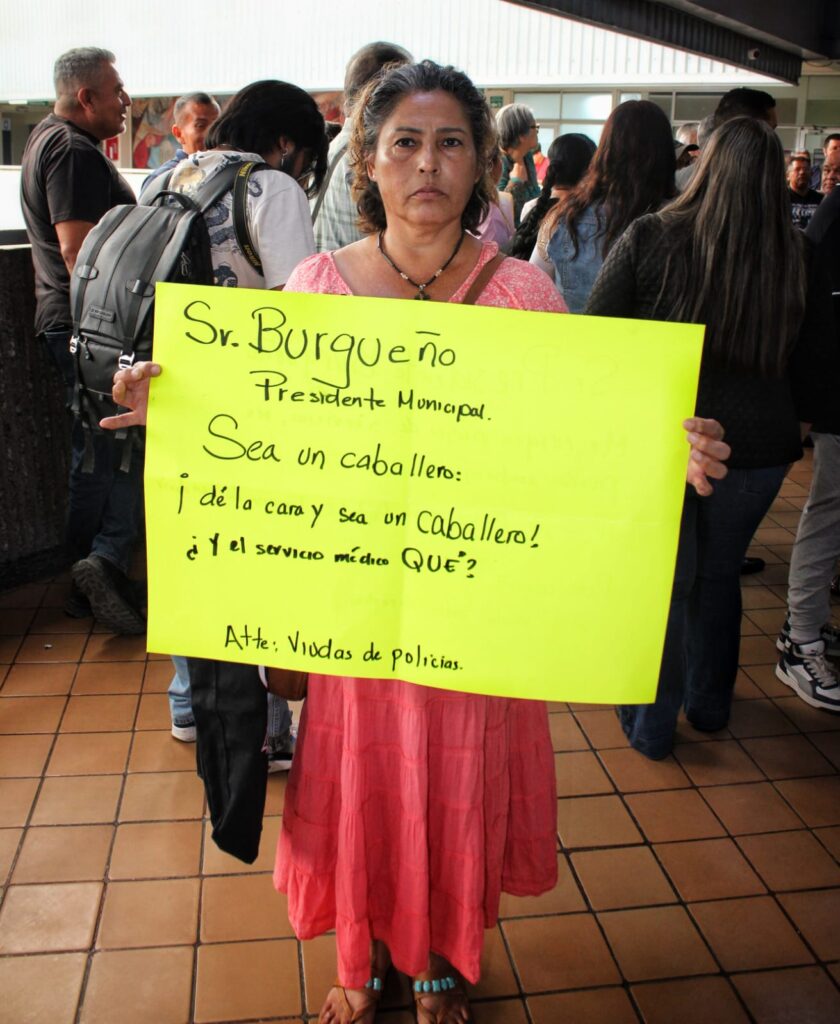 Sr. Burgueño
Presidente Municipal.
Sea un caballero:
¡ dé la cara y sea un caballero!
¿ Y el servicio médico QUÉ?
Atte: Viudas de policias.